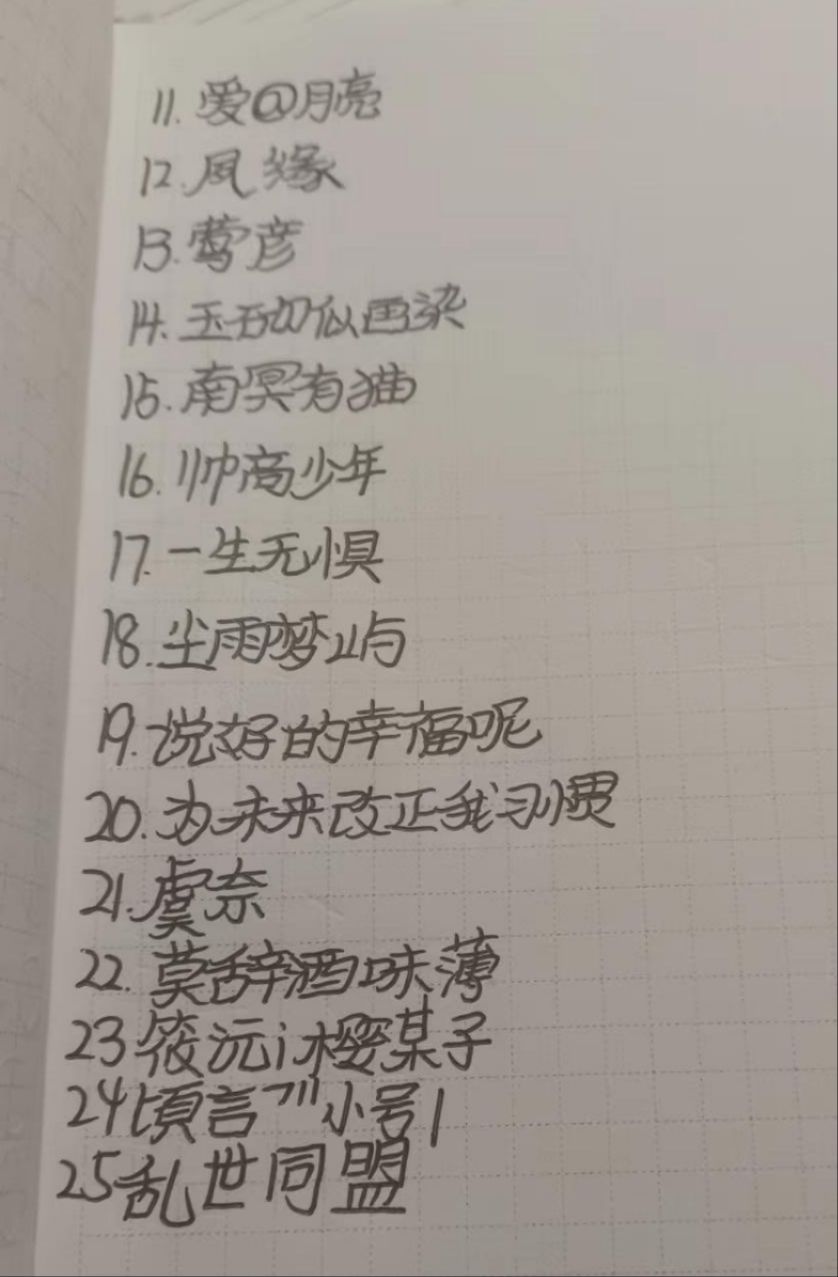 11. 爱@月亮
12. 凤缘
13. 莺彦
14. 玉石切似西染
15. 南冥有猫
16. 帅高少年
17. 一生无惧
18. 尘雨梦山与
19. 说好的幸福呢
20. 为未来改正我习惯
21. 虞奈
22. 莫辞酒味薄
23 筱沅i樱某子
24 顷言 小号1
25 乱世同盟